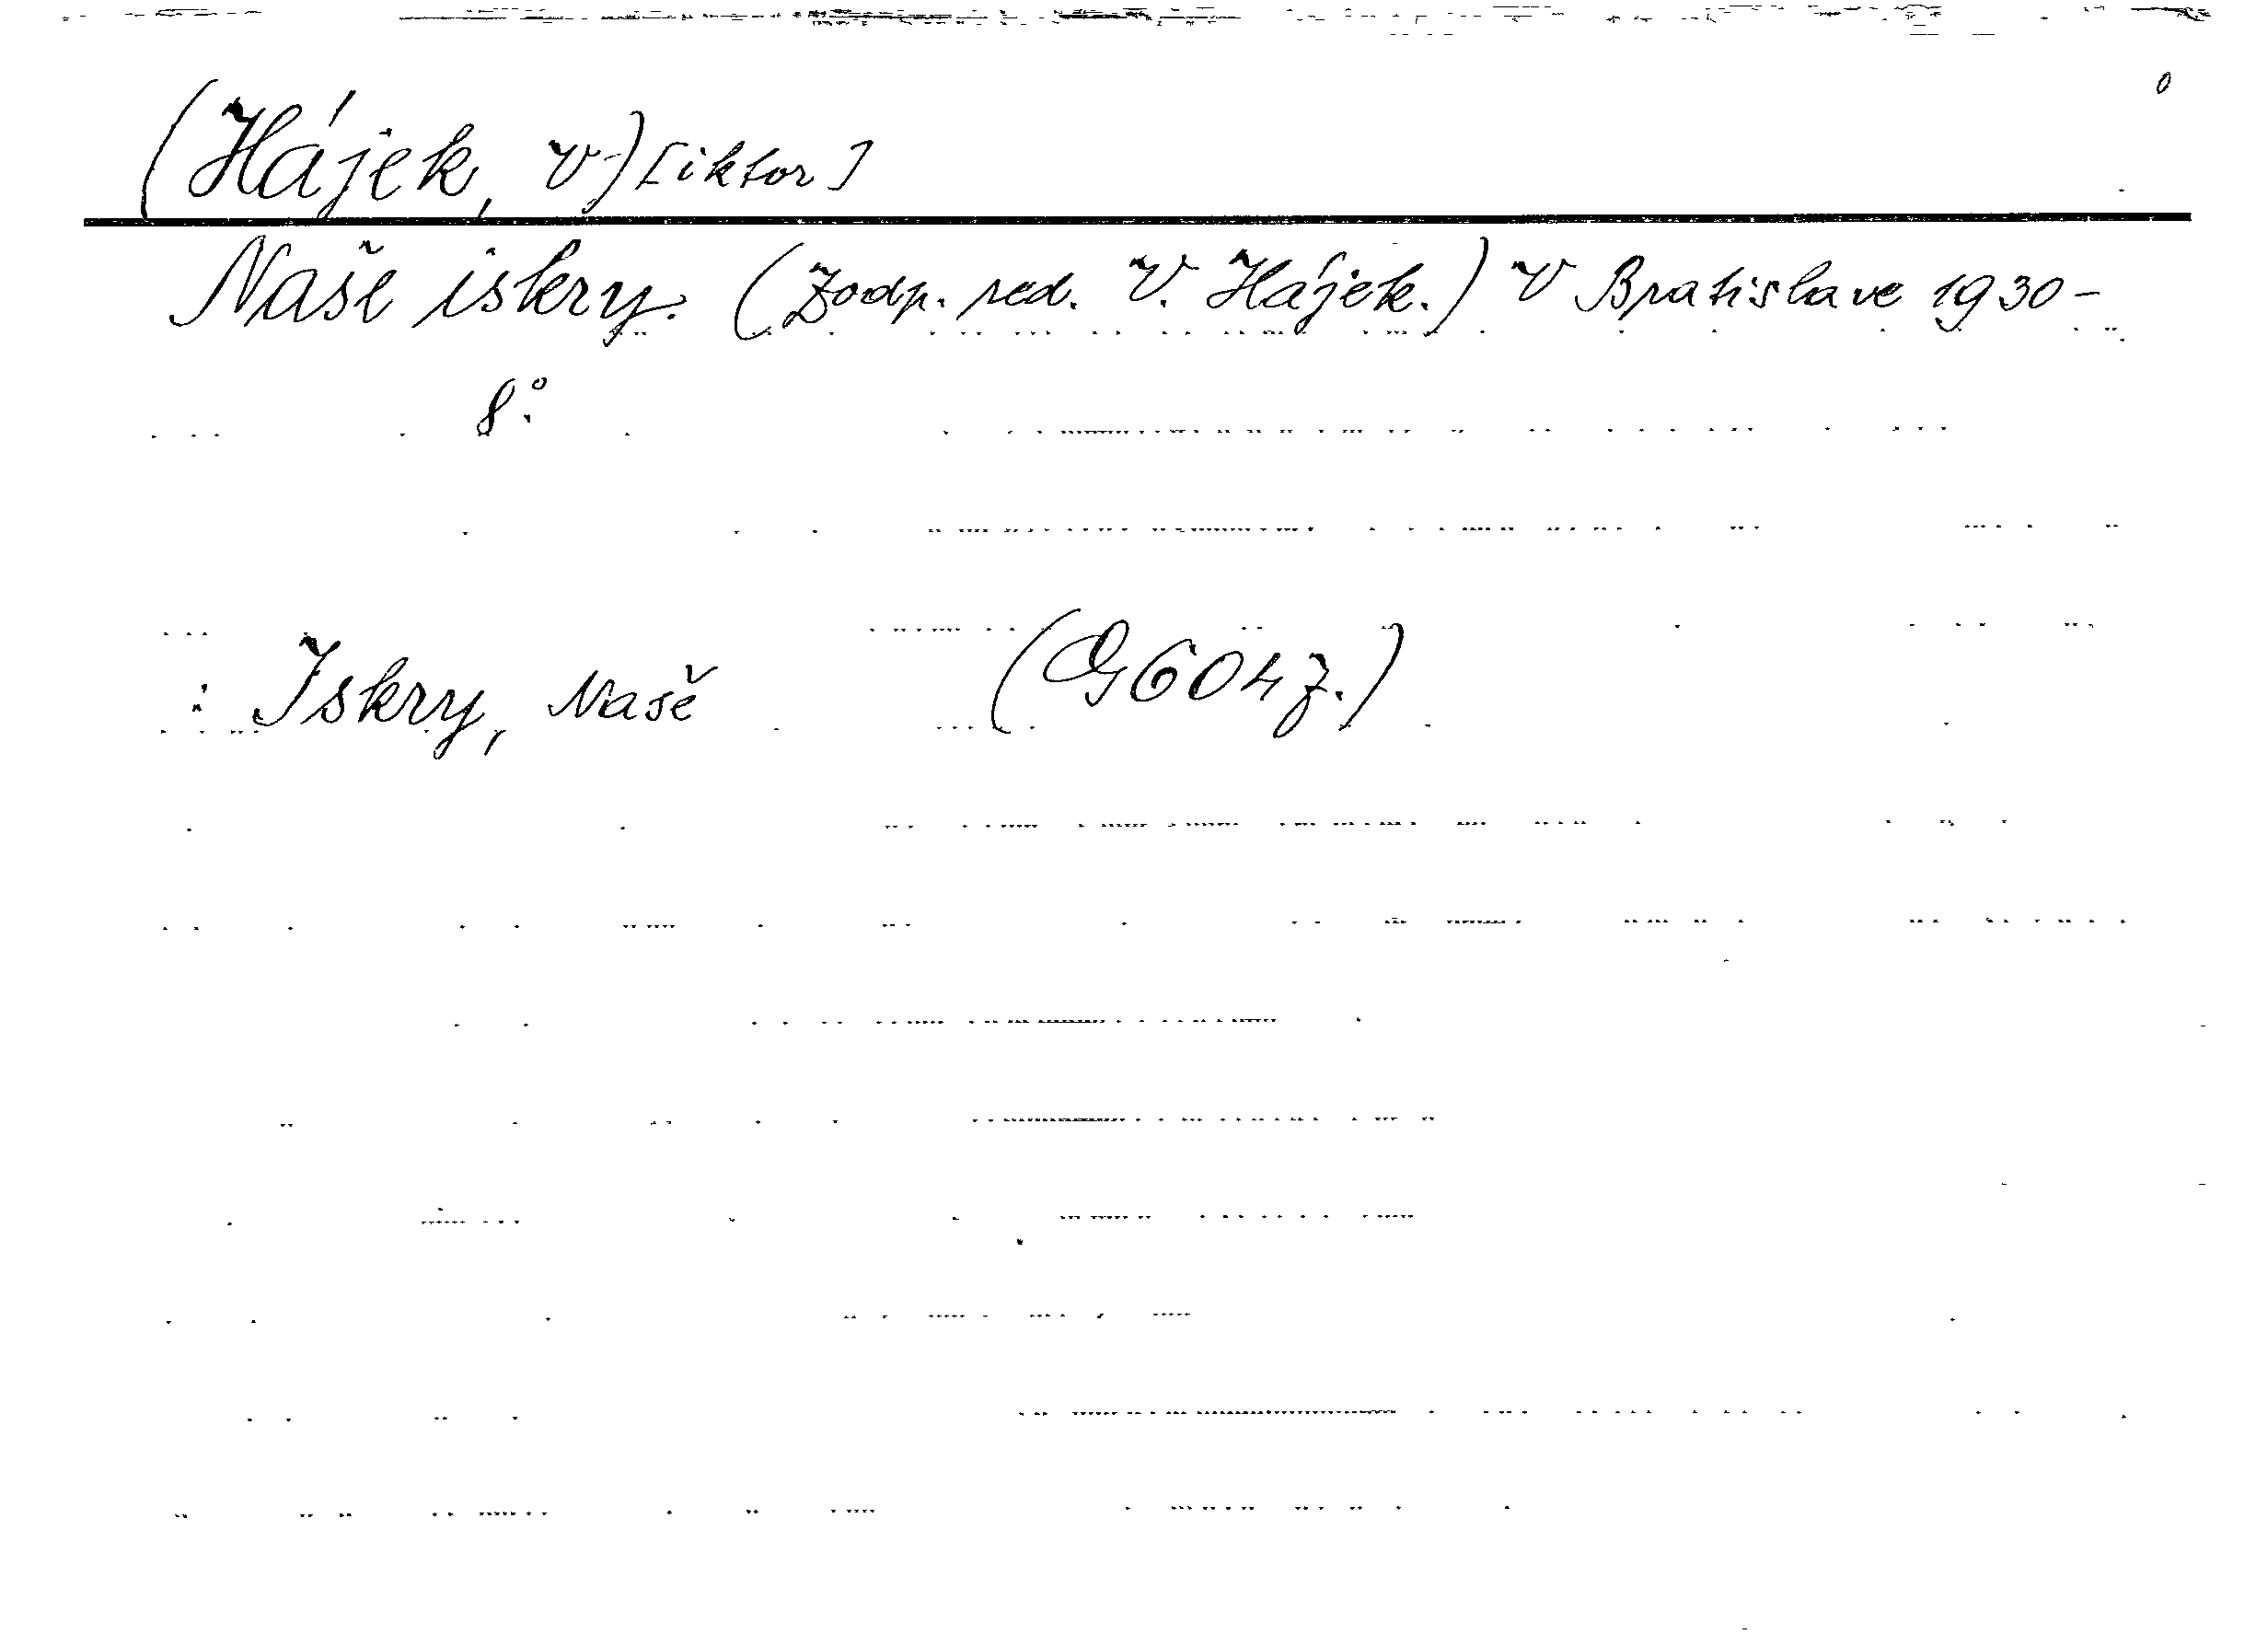 (Hájek, V)[iktor]
Naše iskry. (Zodp. red. V. Hájek.) V Bratislave 1930-
8°.
: Iskry, Naše (G 604 z.)